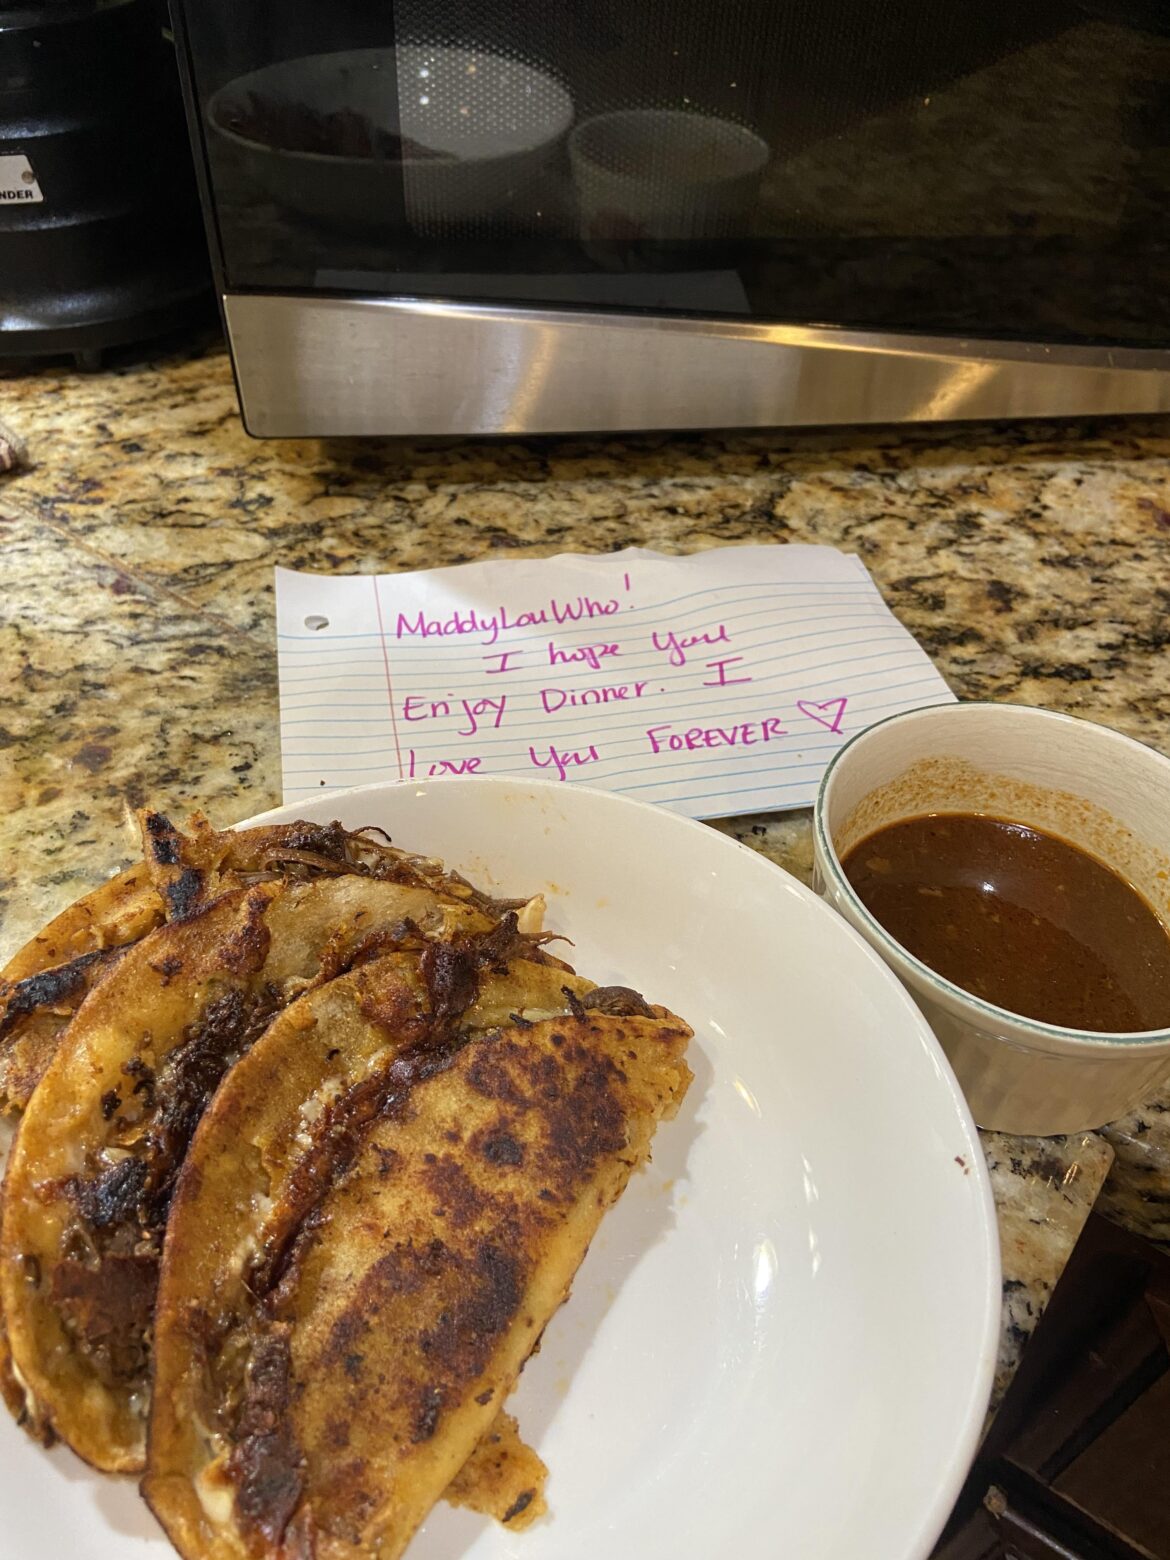 NDER
MaddyLouWho!
I hope You
Enjoy Dinner. I
Love You FOREVER